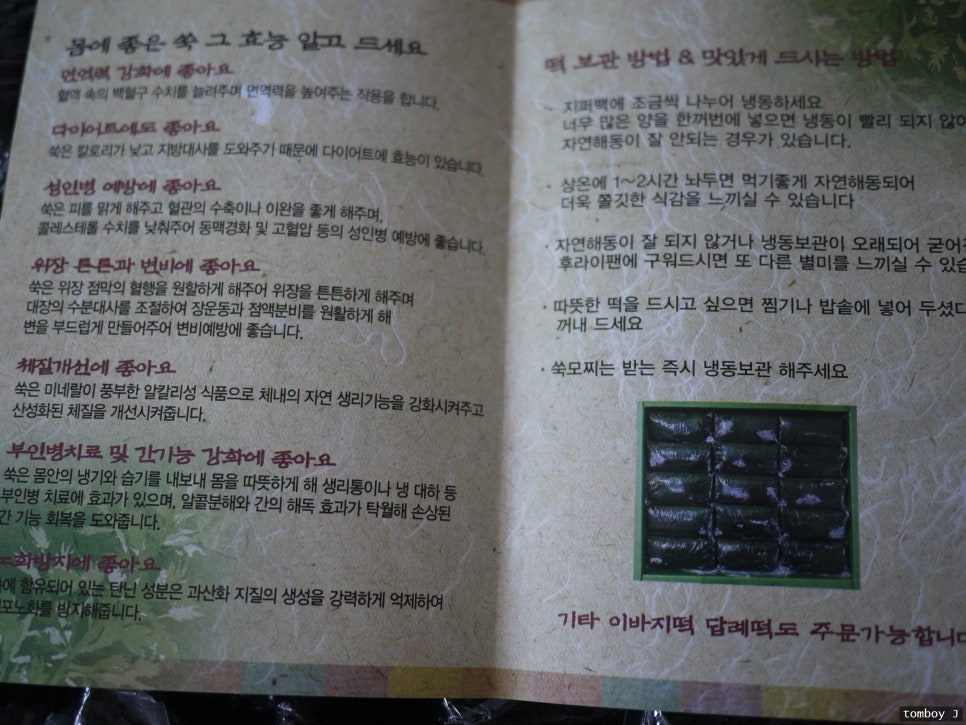 몸에 좋은 쑥 그 효능 알고 드세요
면역력 강화에 좋아요
혈액 속의 백혈구 수치를 늘려주며 면역력을 높여주는 작용을 합니다.
다이어트에도 좋아요
쑥은 칼로리가 낮고 지방대사를 도와주기 때문에 다이어트에 효능이 있습니다.
성인병 예방에 좋아요
쑥은 피를 맑게 해주고 혈관의 수축이나 이완을 좋게 해주며,
콜레스테롤 수치를 낮춰주어 동맥경화 및 고혈압 등의 성인병 예방에 좋습니다.
위장 튼튼과 변비에 좋아요
쑥은 위장 점막의 혈행을 원할하게 해주어 위장을 튼튼하게 해주며
대장의 수분대사를 조절하여 장운동과 점액분비를 원활하게 해
변을 부드럽게 만들어주어 변비예방에 좋습니다.
체질개선에 좋아요
쑥은 미네랄이 풍부한 알칼리성 식품으로 체내의 자연 생리기능을 강화시켜주고
산성화된 체질을 개선시켜줍니다.
부인병치료 및 간기능 강화에 좋아요
쑥은 몸안의 냉기와 습기를 내보내 몸을 따뜻하게 해 생리통이나 냉 대하 등
부인병 치료에 효과가 있으며, 알콜분해와 간의 해독 효과가 탁월해 손상된
간 기능 회복을 도와줍니다.
노화방지에 좋아요
함유되어 있는 탄닌 성분은 과산화 지질의 생성을 강력하게 억제하여
방지해줍니다.
떡 보관 방법 & 맛있게 드시는 방법
· 지퍼백에 조금씩 나누어 냉동하세요
너무 많은 양을 한꺼번에 넣으면 냉동이 빨리 되지 않아
자연해동이 잘 안되는 경우가 있습니다.
· 상온에 1~2시간 놔두면 먹기좋게 자연해동되어
더욱 쫄깃한 식감을 느끼실 수 있습니다
· 자연해동이 잘 되지 않거나 냉동보관이 오래되어 굳어
후라이팬에 구워드시면 또 다른 별미를 느끼실 수 있습
· 따뜻한 떡을 드시고 싶으면 찜기나 밥솥에 넣어 두셨다
꺼내 드세요
· 쑥모찌는 받는 즉시 냉동보관 해주세요
기타 이바지떡 답례떡도 주문가능합니다
tomboy J